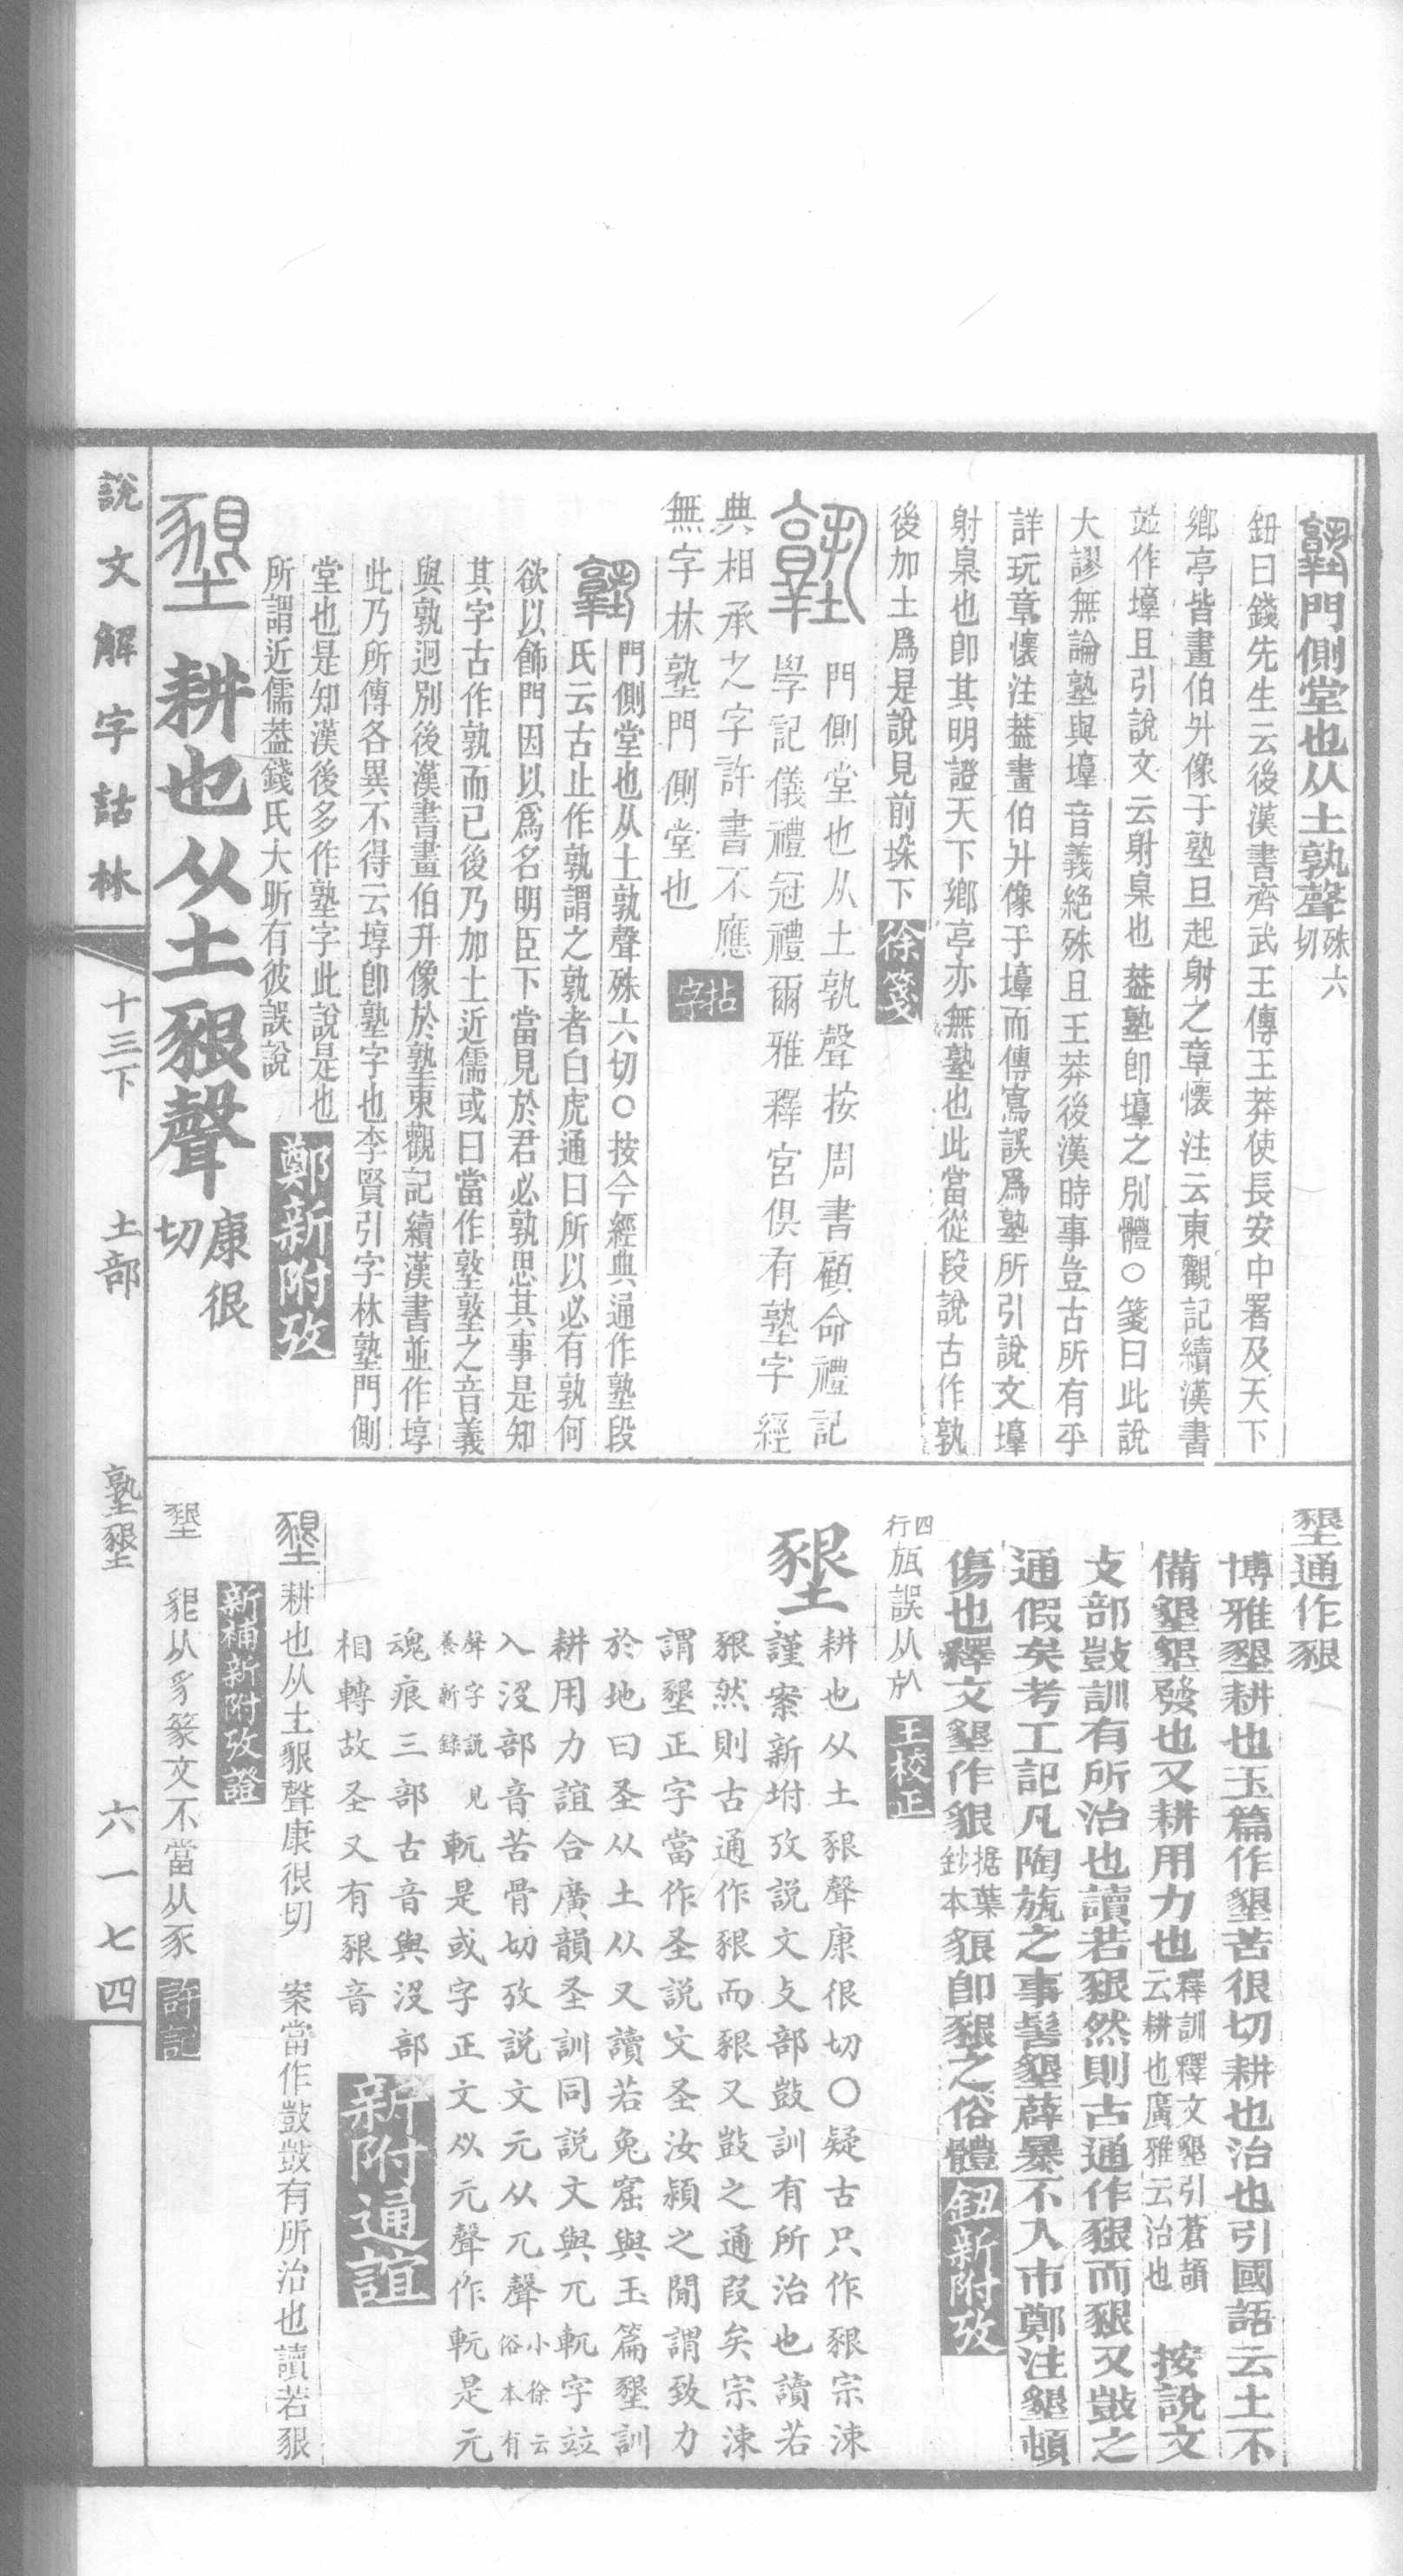 塾門側堂也从土孰聲殊六切
鈕曰錢先生云後漢書齊武王傳王莽使長安中署及天下
鄉亭皆畫伯升像于塾旦起射之章懷注云東觀記續漢書
竝作㙜且引說文云射臬也葢塾卽㙜之別體○箋曰此說
大謬無論塾與㙜音義絶殊且王莽後漢時事豈古所有乎
詳玩章懷注葢畫伯升像于㙜而傳寫誤爲塾所引說文㙜
射臬也卽其明證天下鄉亭亦無塾也此當從段說古作孰
後加土爲是說見前垛下 徐箋
塾 門側堂也从土孰聲按周書顧命禮記
學記儀禮冠禮爾雅釋宮俱有塾字經
典相承之字許書不應
無字林塾門側堂也 拈字
塾 門側堂也从土孰聲殊六切○按今經典通作塾段
氏云古止作孰謂之孰者白虎通曰所以必有孰何
欲以飾門因以爲名明臣下當見於君必孰思其事是知
其字古作孰而已後乃加土近儒或曰當作㙜㙜之音義
與孰迥別後漢書畫伯升像於塾東觀記續漢書並作埻
此乃所傳各異不得云埻卽塾字也李賢引字林塾門側
堂也是知漢後多作塾字此說是也
所謂近儒葢錢氏大昕有彼誤說 鄭新附攷
墾 耕也从土豤聲康很切
墾通作豤
博雅墾耕也玉篇作墾苦很切耕也治也引國語云土不
備墾墾發也又耕用力也釋訓釋文墾引蒼頡云耕也廣雅云治也 按說文
攴部㪣訓有所治也讀若豤然則古通作豤而豤又㪣之
通假矣考工記凡陶瓬之事髻墾薜暴不入市鄭注墾頓
傷也釋文墾作貇据葉鈔本貇卽豤之俗體 鈕新附攷
四行瓬誤从㫃 王校正
墾 耕也从土豤聲康很切○疑古只作豤宗涑
謹案新坿攷說文攴部㪣訓有所治也讀若
豤然則古通作豤而豤又㪣之通叚矣宗涑
謂墾正字當作圣說文圣汝潁之閒謂致力
於地曰圣从土从又讀若兔窟與玉篇墾訓
耕用力誼合廣韻圣訓同說文與兀軏字竝
入沒部音苦骨切攷說文元从兀聲小徐云俗本有
聲字說見養新錄 軏是或字正文从元聲作軏是元
魂痕三部古音與沒部
相轉故圣又有豤音 新附通誼
墾 耕也从土豤聲康很切 案當作㪣㪣有所治也讀若豤
新補新附攷證
墾 豤从豸篆文不當从豕 許記
說文解字詁林 十三下 土部 塾墾 六一七四